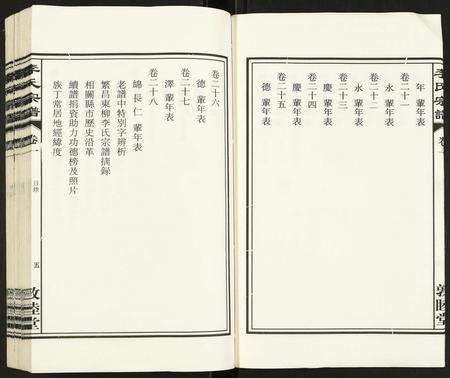 李氏宗譜
卷一
年 輩年表
卷二十一
永 輩年表
卷二十二
永 輩年表
卷二十三
慶 輩年表
卷二十四
慶 輩年表
卷二十五
德 輩年表
敦睦堂
卷二十六
德 輩年表
卷二十七
澤 輩年表
卷二十八
綿 長 仁 輩年表
老譜中特別字辨析
繁昌東柳李氏宗譜摘録
相關縣市歷史沿革
續譜捐資助力功德榜及照片
族丁常居地經緯度
李氏宗譜
卷一
目録
五
敦睦堂